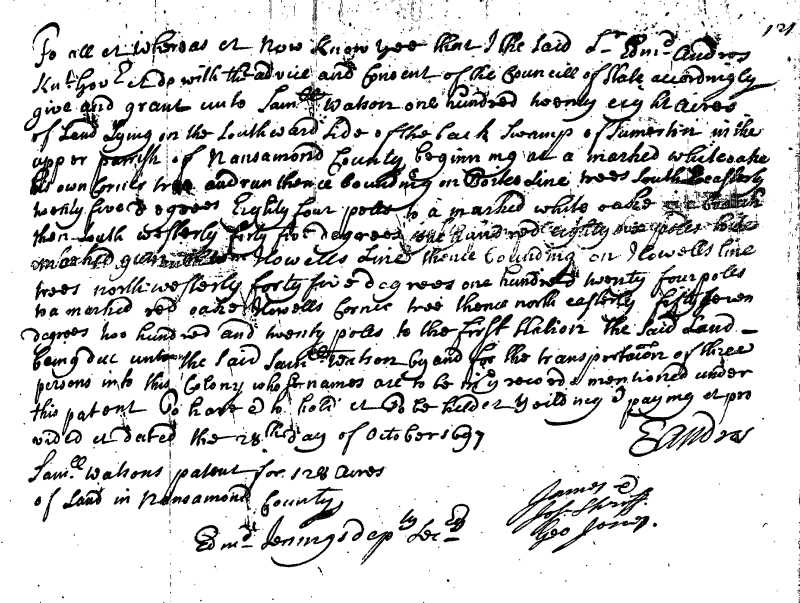 121
To all &c Whereas &c Now Know yee that I the said Sr Edmd Andros
Knt Govr &c do with the advice and Consent of the Councill of State accordingly
give and grant unto Samll Watson one hundred twenty eight Acres
of Land Lying on the Southward Side of the back Swamp of Sumerton in the
upper parrish of Nansamond County beginning at a marked white oake
his own Corner tree and run thence bounding on Line trees South Easterly
twenty five degrees Eighty four poles to a marked white oake
then South westerly forty five degrees one hundred eighty poles to a
marked gum Howells Line thence bounding on Howells line
trees north westerly forty five degrees one hundred twenty four poles
to a marked red oake Howells Corner tree thence north easterly fifty seven
degrees two hundred and twenty poles to the first Station the said Land
being due unto the said Samll Watson by and for the transportacon of three
persons into this Colony whose names are to be in ye records mentioned under
this patent To have & to hold &c To be held &c Yeilding & paying &c pro
vided &c dated the 28th day of October 1697
E Andros
Samll Watsons patent for 128 Acres
of Land in Nansamond County
Edmd Jenings dep ty Sec ry
James
Jos.
Geo Jones.